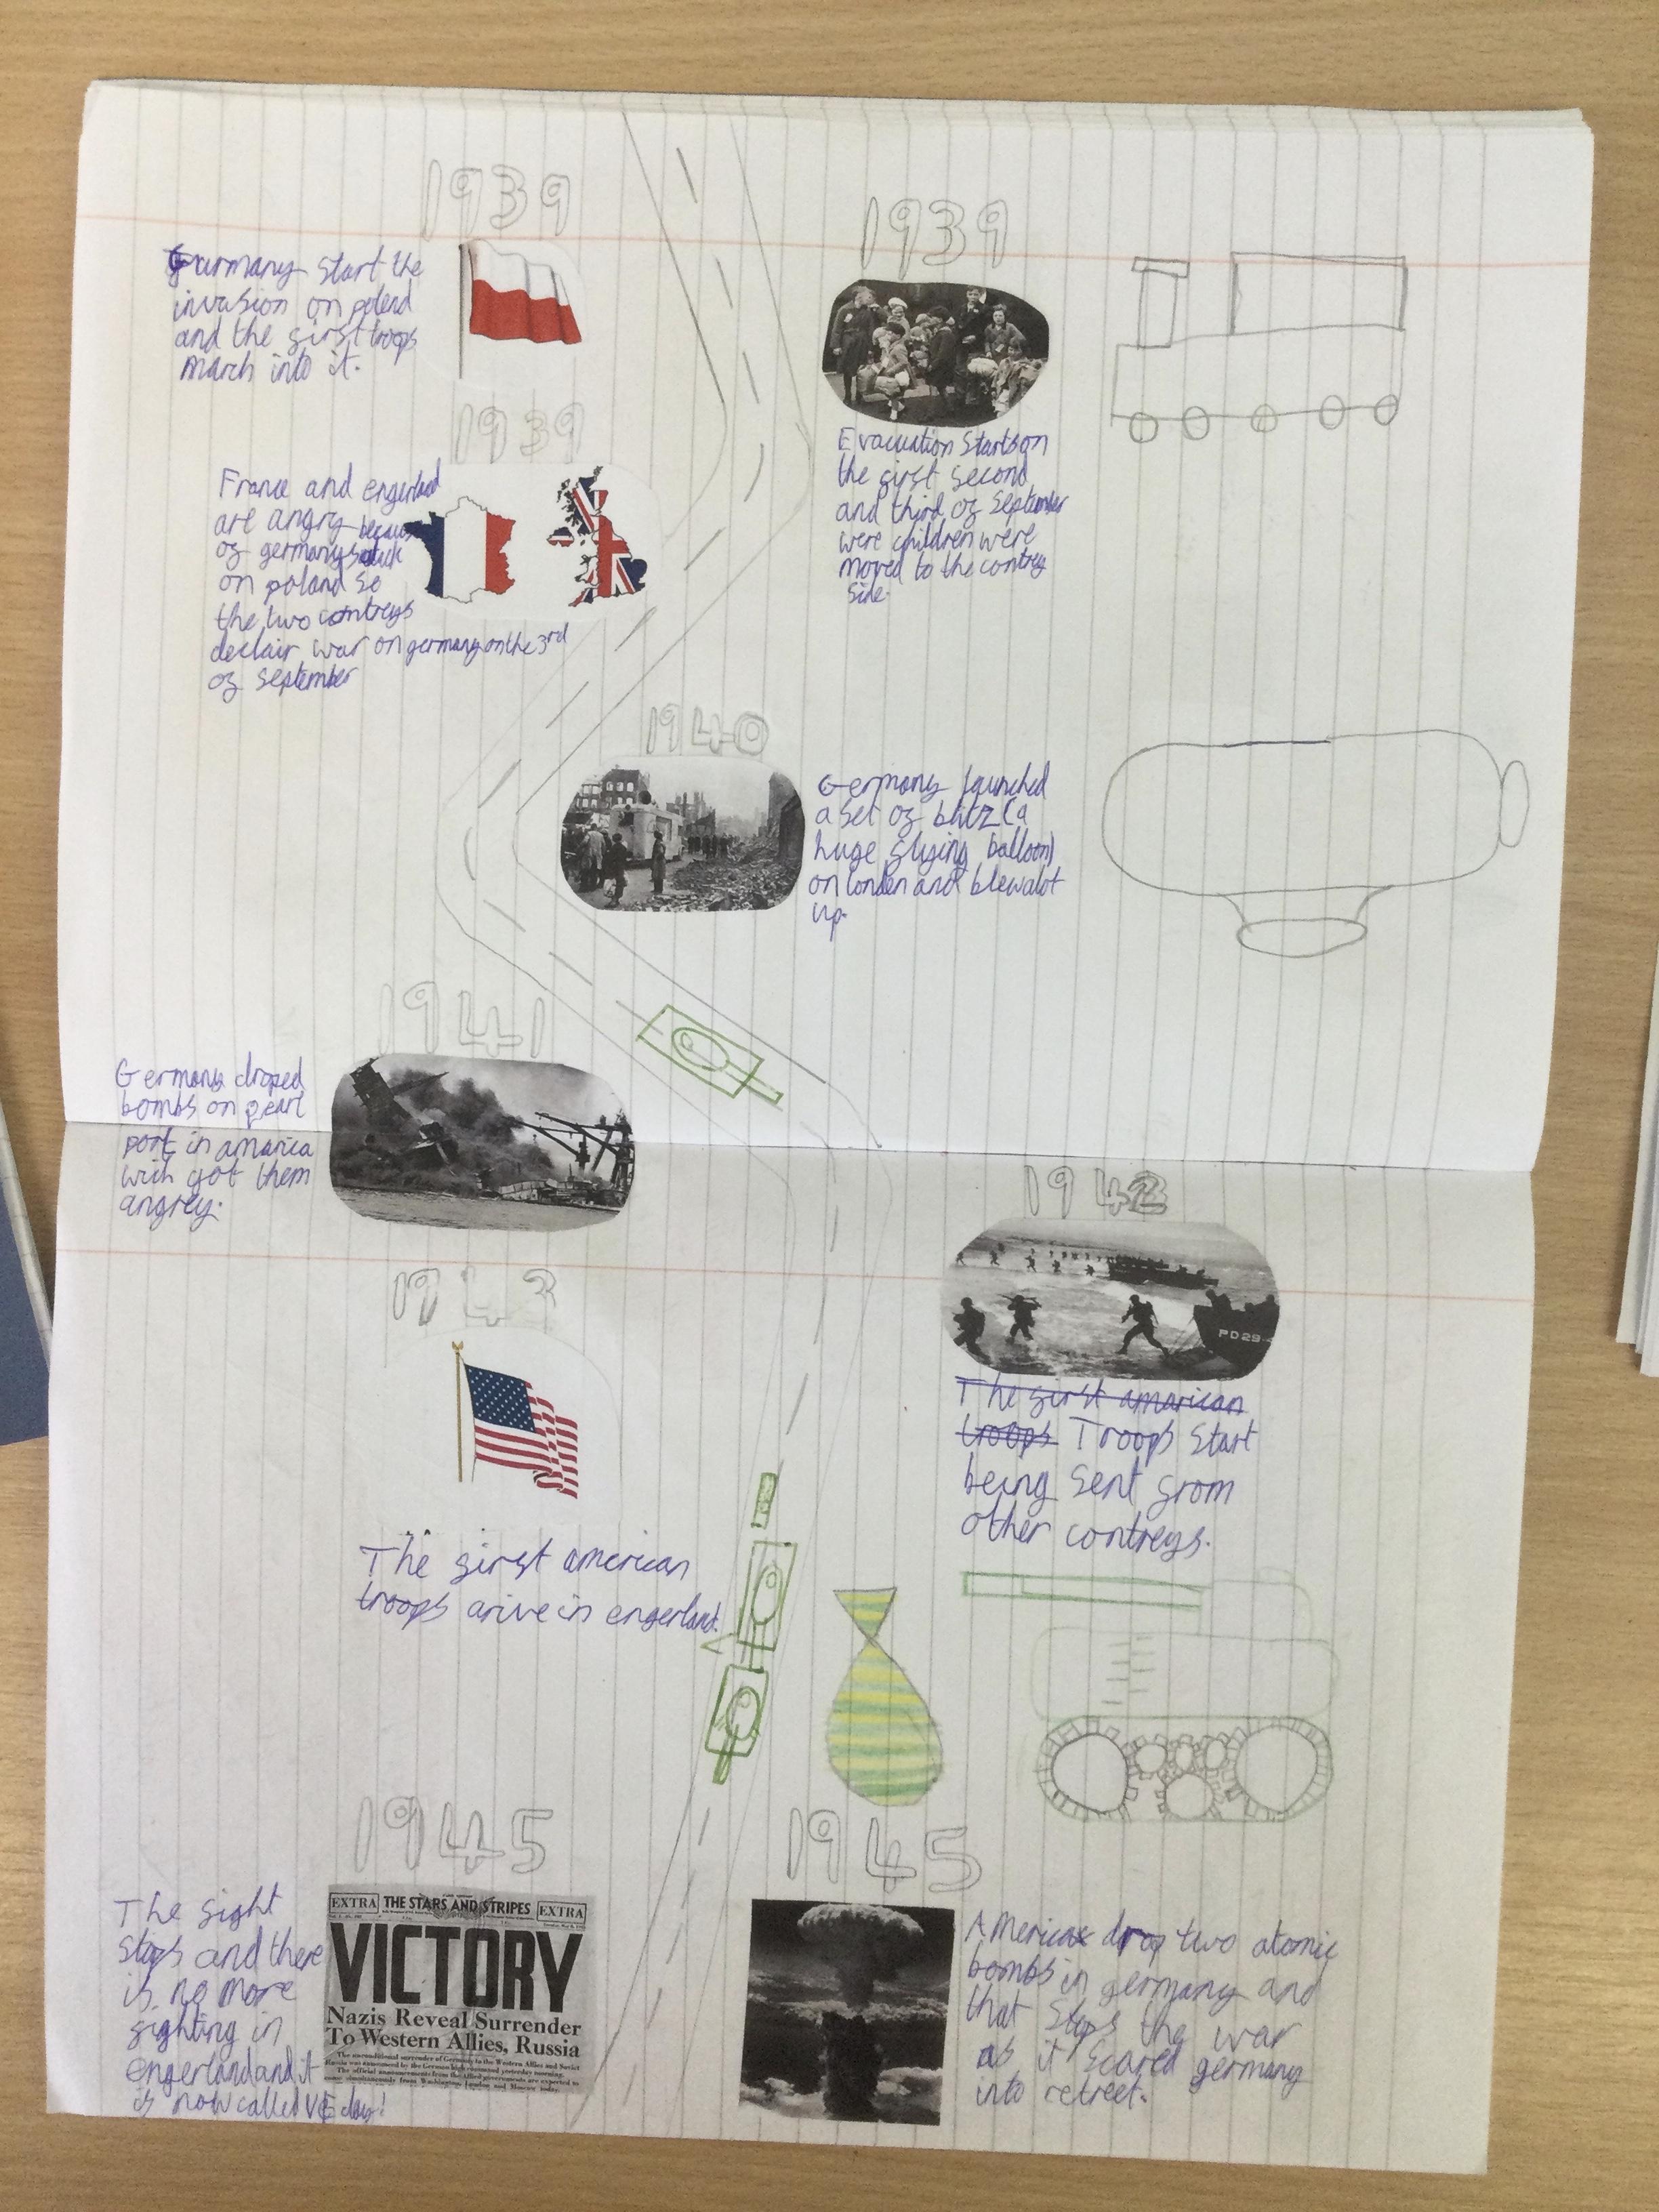 1939
Germany start the
invasion on polend
and the first troops
march into it.
1939
Evacuation starts on
the first second
and third of September
were children were
moved to the contrey
side.
1939
France and engerland
are angry because
of germanys attack
on poland so
the two contreys
declair war on germany on the 3rd
of september
1940
Germany launched
a set of blitz (a
huge flying balloon)
on londen and blew alot
up.
1941
Germany droped
bombs on pearl
port in amarica
wich got them
angrey.
1942
PD29-4
The first american
troops Troops start
being sent from
other contreys.
1943
The first american
troops arive in engerland.
1945
The fight
stops and there
is no more
fighting in
engerland and it
is now called VE day!
EXTRA THE STARS AND STRIPES EXTRA
VICTORY
Nazis Reveal Surrender
To Western Allies, Russia
1945
America drop two atomic
bombs in germany and
that stops the war
as it scared germany
into retreet.